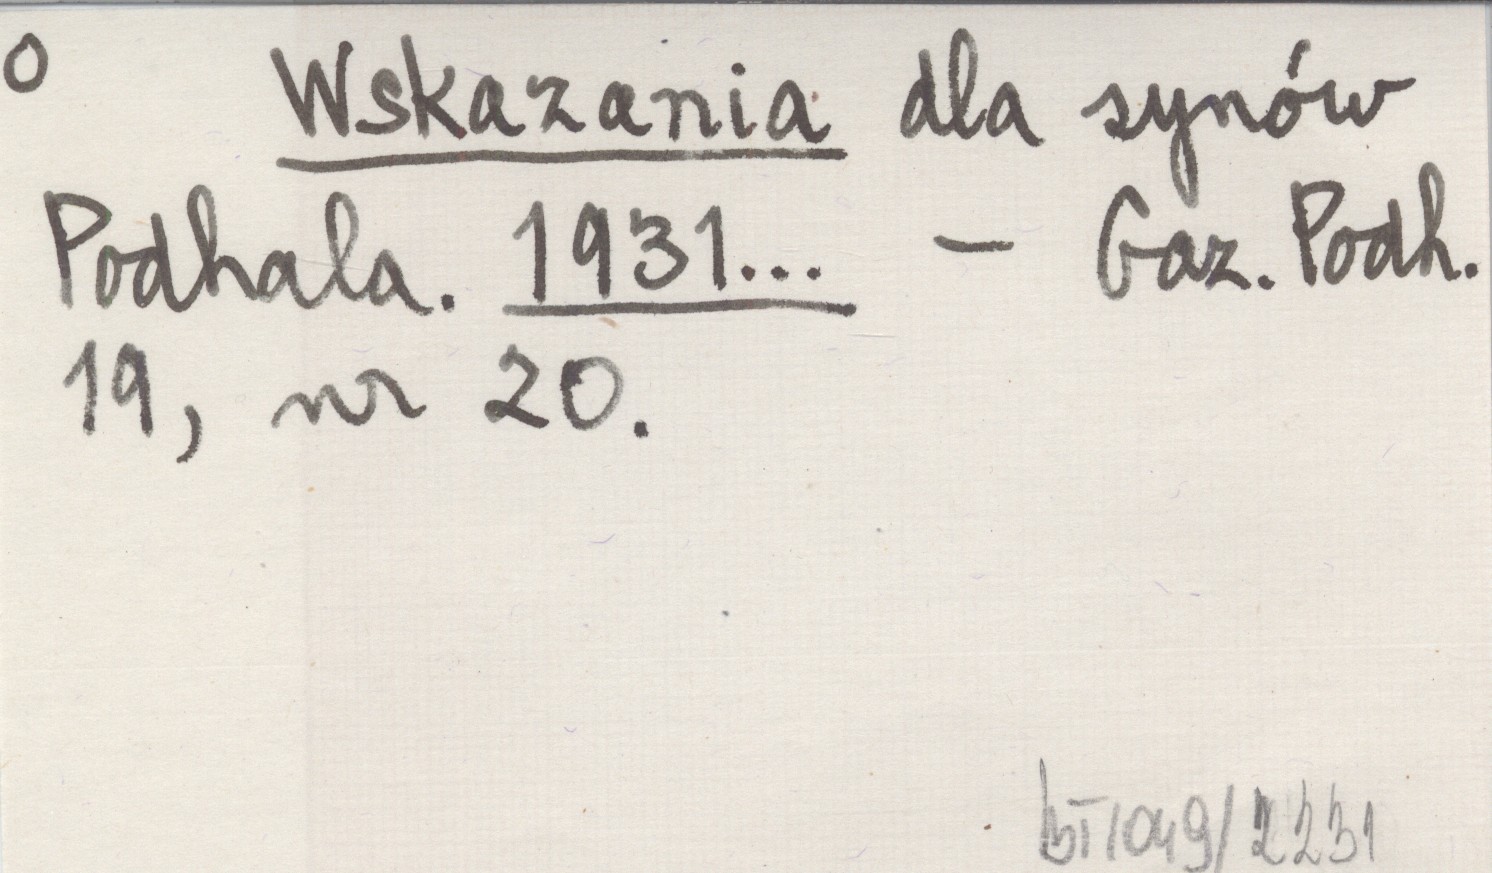 O Wskazania dla synów
Podhala. 1931... - Gaz. Podh.
19, nr 20.
/2231